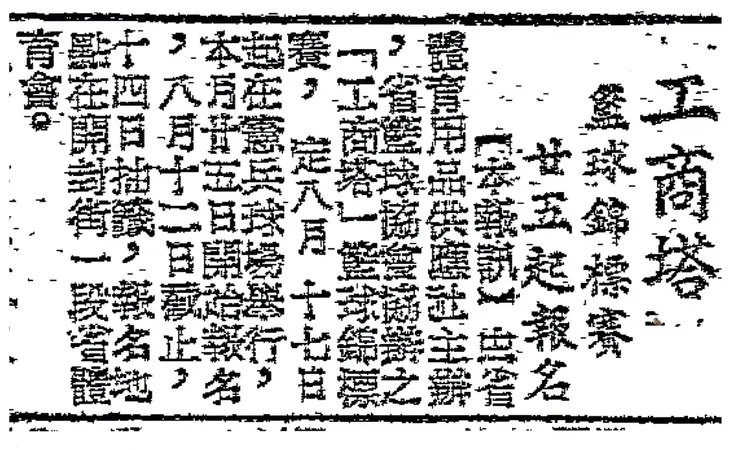 工商塔
籃球錦標賽
廿五起報名
【本報訊】由省
體育用品供應社主辦
，省籃球協會協辦之
「工商塔」籃球錦標
賽，定八月十七日
起在憲兵球場舉行，
本月廿五日開始報名
，八月十二日截止，
十四日抽籤，報名地
點在開封街一段省體
育會。